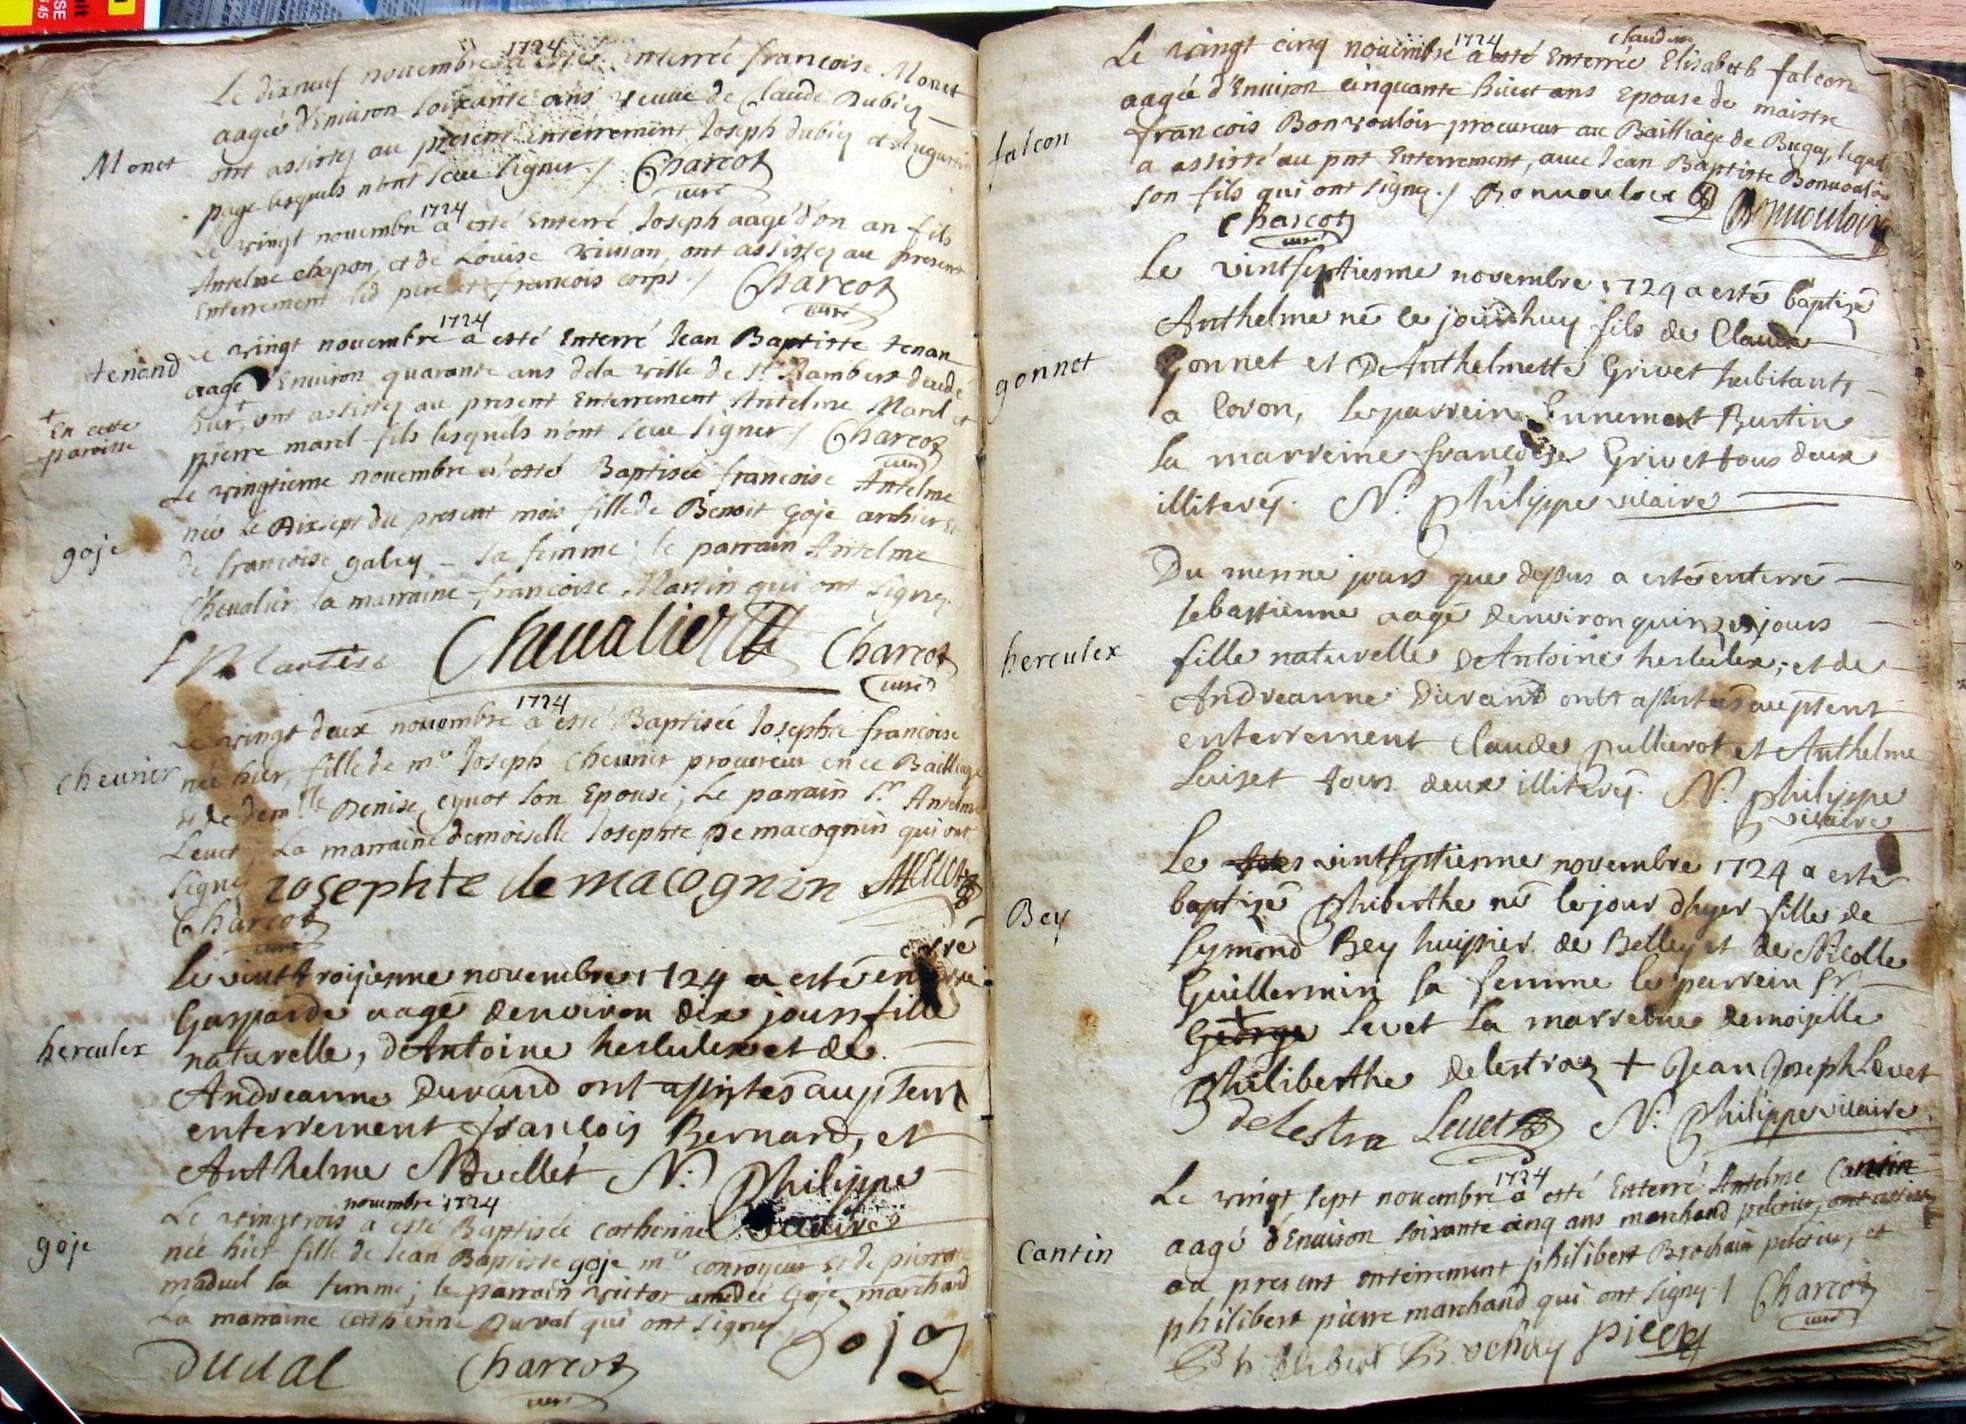 Le dixneuf novembre 1724 a esté interrée francoise Monet
aagée d'Environ soixante ans veuve de Claude Dubiez
Monet
ont assistez au present Enterrement Joseph dubiez et Augustin
page lesquels n'ont sceu signer ./ Charcot
curé
Le vingt novembre 1724 a esté Enterré Joseph aagé d'on an fils
Antelme chapon, et de Louise vission, ont assistez au present
Enterrement led pere et francois corps ./ Charcot
curé
tenand
Le vingt novembre 1724 a esté Enterré Jean Baptiste tenan
aagé d'Environ quarante ans dela ville de St Rambert decedé
+ En cette
paroisse
hier +, ont assistez au present Enterrement Antelme Marel et
pierre marel fils lesquels n'ont sceu signer / Charcot
curé
Le vingtieme novembre a esté Baptisée francoise Antelme
née Le Dixsept du present mois fille de Benoit goje archier et
goje
de francoise galey sa femme; le parrain Antelme
Chevalier, la marraine francoise Martin qui ont signez
Chevalier Charcot
curé
Le vingt deux novembre 1724 a esté Baptisée Josephe francoise
chevrier
née hier, fille de me Joseph Chevrier procureur en ce Bailliage
et de demlle Denise cyvot son Epouse; Le parrain sr Antelme
Levet, La marraine demoiselle Josephte De macognin qui ont
signez Josephte de macognin Levet
Charcot
curé
Le vint troisienne novembre 1724 a esté enterré
Gasparde aagé denviron dix jours fille
herculex
naturelle, d'Antoine herculex et de
Andreanne Durand ont assistes au psent
enterrement francois Bernard, et
Anthelme Nouellet N. Philippe
vicaire
Le vingtrois novembre 1724 a esté Baptisée catherine
goje
née hier fille de Jean Baptiste goje me conroyeur et de pierrette
maduel sa femme; le parrain victor amedée Goje marchand
La marraine catherine Duval qui ont signez
duval Charcot goje
curé
Le vingt cinq novembre 1724 a esté Enterrée claudine Elisabeth falcon
aagée d'Environ cinquante huict ans Epouse de maistre
falcon
francois Bonvouloir procureur au Bailliage de Bugey, lequel
a assisté au pnt Enterrement, avec Jean Baptiste Bonvouloir
son fils qui ont signez ./ Bonvouloir Bonvouloir
Charcot
curé
Le vintseptiesme novembre 1724 a esté baptizé
Anthelme né ce jourdhuy fils de Claude
gonnet
Gonnet et D Anthelmette Grivet habitants
a Coron, le parrein Ennemont Burtin
la marreine francoise Grivet tous deux
illiterez. N. Philippe vicaire
Du menne jours que dessus a esté enterré
sebastienne aagé denviron quinze jours
herculex
fille naturelle d'Antoine herculex, et de
Andreanne Durand ont assistes au psent
enterrement Claude Pullierot et Anthelme
Luiset tous deux illiterez. N. Philippe
vicaire
Le vintseptienne novembre 1724 a esté
baptizé Philiberthe né le jour d'hyer fille de
Bey
Symond Bey huissier de Belley et de Nicolle
Guillermin sa femme le parrein sr
George + Levet la marreine demoiselle
Philiberthe delestraz + Jean Joseph Levet
delestra Levet N. Philippe vicaire
Le vingt sept novembre 1724 a esté Enterré Antelme Cantin
aagé d'Environ soixante cinq ans marchand peletier, ont assistez
Cantin
au present enterrement philibert Brochain peletier, et
philibert pierre marchand qui ont signez / Charcot
curé
Philibert Brochay pierre